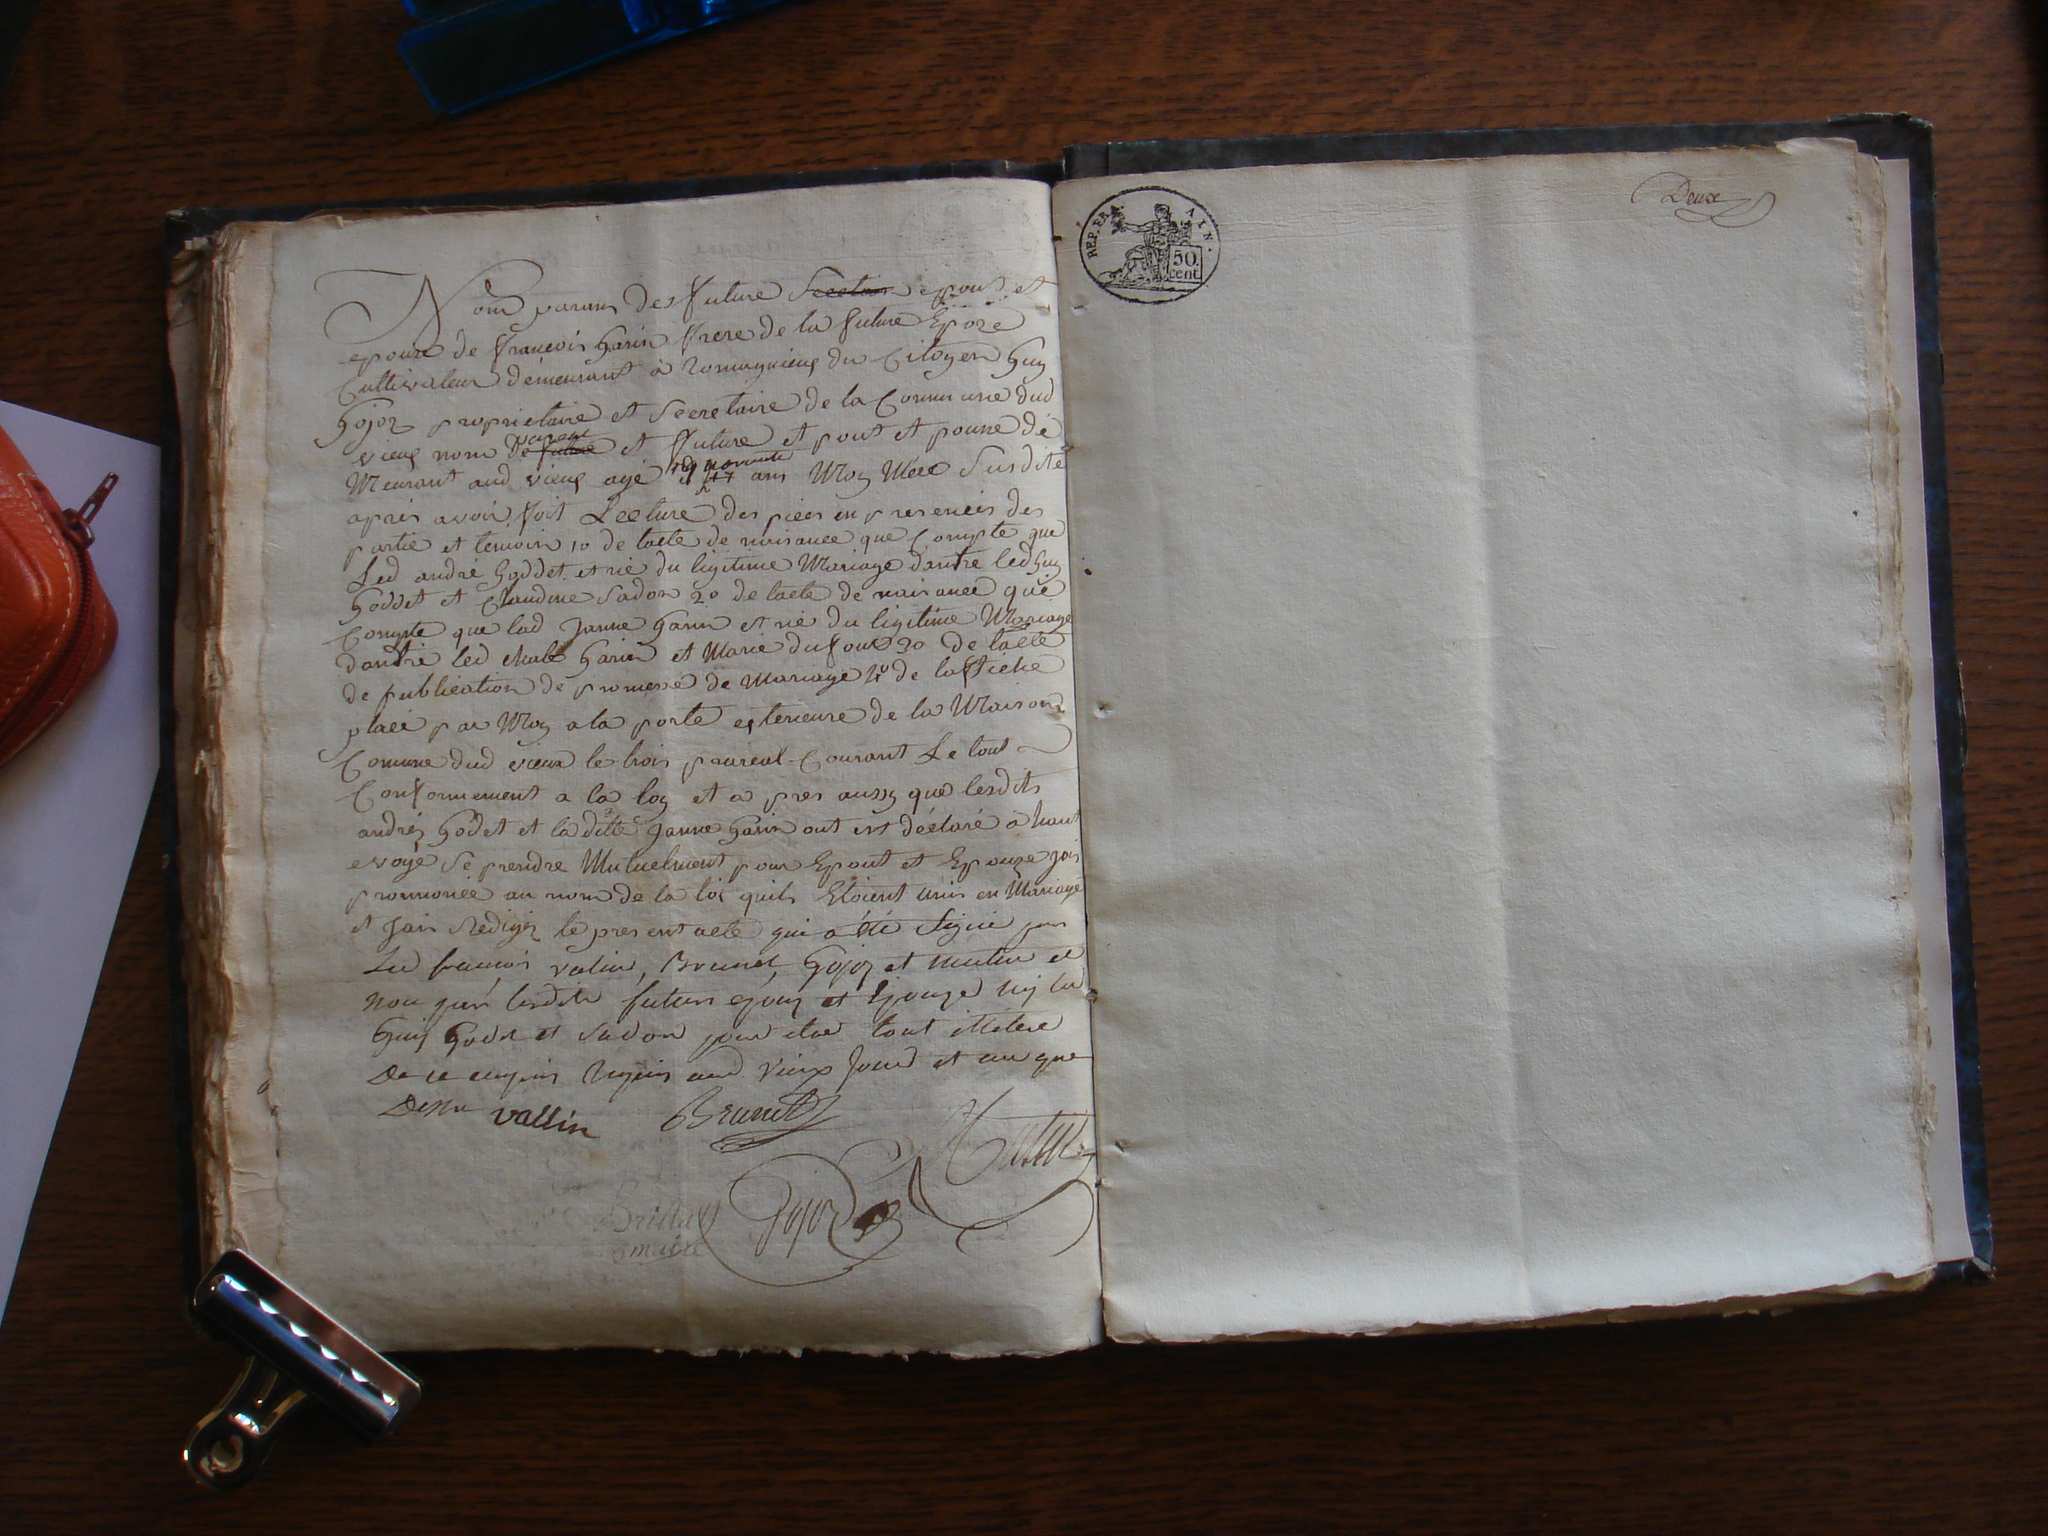 Nom parans des future Secetair epout et
epouze de francois garin frere de la future Epoze
Cultivateur demeurant à romagnieu du Citoyen Guy
Gojoz proprietaire et Secretaire de la Commune dud
vieux nom parent et future et pout et pouse dé
Meurant aud vieux agé ans Moy Mere Susdite
apres avoir fait Lecture des pieces en presences des
partie et temoin 10 de lacte de naisance que Compte que
Led andré Goddet et né du ligitime Mariage dantre led Guy
Goddet et Claudine Sadon 20 de lacte de naisance que
Compte que lad Janne Garin et né du ligitime Mariage
dantre led Garin et Marie dufour 30 de lacte
de publication de promese de Mariage 4º de laffiche
placé par Moy a la porte exterieure de la Maison
Comune dud vieux le trois prareal Courant Le tout
Conformement a la loy et a pres aussy que lesdits
andré Godet et la ditte Janne Garin ont est déclaré à haut
e voye Se prendre Mutuelment pour Epout et Epouze jais
prononcé au nom de la loi quils Etoient unis en Mariage
et Jais Redigez le present acte qui a été Signé par
Led francois valin, Brunet, Gojoz et mutin et
non par lesdits futurs epoux et Epouze ny led
Guy Godet et Sadon pour etre tout illetere
De ce enquis Requis aud. Vieux Jour et an que
Dessu vallin Brunet
Gojoz
maire
REP. FRA. AIN.
50 cent
Deux